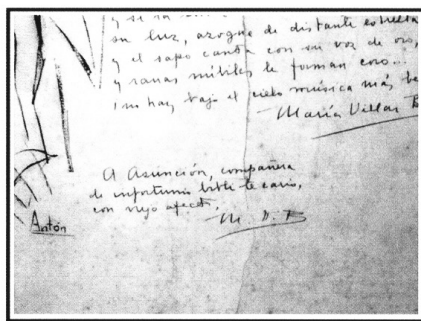 y se
su luz, azogue de distante estrella
y el sapo canta con su voz de oro,
y ranas núbiles le forman coro...
¡no hay bajo el cielo música más be
María Villar B
A Asunción, compañera
de infortunio
con viejo afecto,
M. V. B
Antón